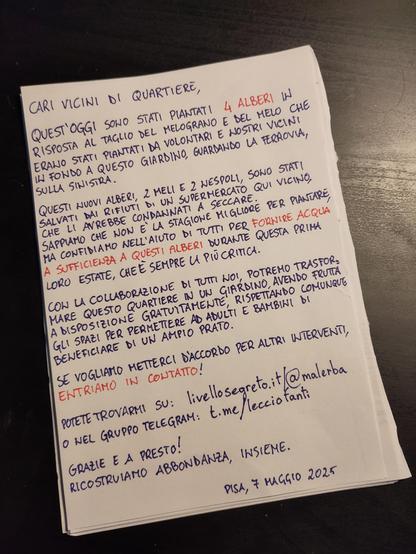 CARI VICINI DI QUARTIERE,
QUEST'OGGI SONO STATI PIANTATI 4 ALBERI IN
RISPOSTA AL TAGLIO DEL MELOGRANO E DEL MELO CHE
ERANO STATI PIANTATI DA VOLONTARI E NOSTRI VICINI
IN FONDO A QUESTO GIARDINO, GUARDANDO LA FERROVIA,
SULLA SINISTRA.
QUESTI NUOVI ALBERI, 2 MELI E 2 NESPOLI, SONO STATI
SALVATI DAI RIFIUTI DI UN SUPERMERCATO QUI VICINO,
CHE LI AVREBBE CONDANNATI A SECCARE.
SAPPIAMO CHE NON E' LA STAGIONE MIGLIORE PER PIANTARE,
MA CONFIDIAMO NELL'AIUTO DI TUTTI PER FORNIRE ACQUA
A SUFFICIENZA A QUESTI ALBERI DURANTE QUESTA PRIMA
LORO ESTATE, CHE È SEMPRE LA PIÙ CRITICA.
CON LA COLLABORAZIONE DI TUTTI NOI, POTREMO TRASFOR=
MARE QUESTO QUARTIERE IN UN GIARDINO, AVENDO FRUTTA
A DISPOSIZIONE GRATUITAMENTE, RISPETTANDO COMUNQUE
GLI SPAZI PER PERMETTERE AD ADULTI E BAMBINI DI
BENEFICIARE DI UN AMPIO PRATO.
SE VOGLIAMO METTERCI D'ACCORDO PER ALTRI INTERVENTI,
ENTRIAMO IN CONTATTO!
POTETE TROVARMI SU: livellosegreto.it/@malerba
O NEL GRUPPO TELEGRAM: t.me/lecciofanti
GRAZIE E A PRESTO!
RICOSTRUIAMO ABBONDANZA, INSIEME.
PISA, 7 MAGGIO 2025